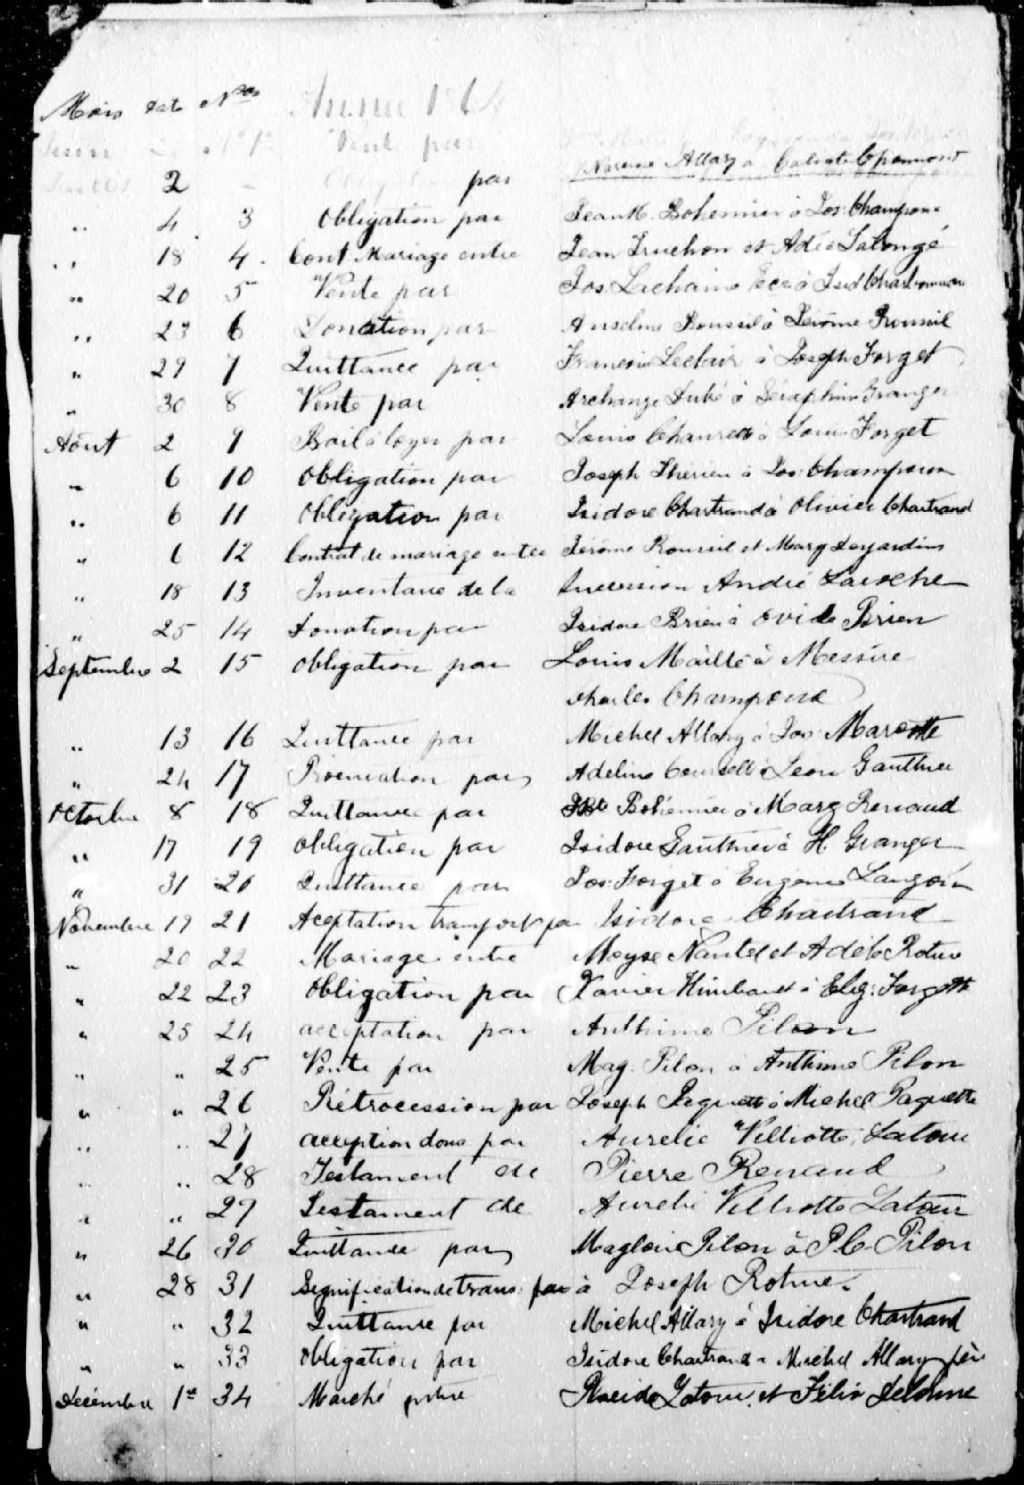 Mois Date Nos Année 1864
Vente par
2 par Narcisse Allary à Calixte
" 4 3 Obligation par Jean Bte Bohemier à Jos. Champoux
" 18 4 Cont Mariage entre Jean Truchon et Adèle Labonté
" 20 5 Vente par Jos Lachaine à Isid Charbonneau
" 23 6 Donation par Anselme Roussil à Jérôme Roussil
" 29 7 Quittance par Francois Leclair à Joseph Forget
" 30 8 Vente par Archange Dubé à Séraphin Granger
Août 2 9 Bail à loyer par Louis Chaurette à Louis Forget
" 6 10 Obligation par Joseph Therien à Jos. Champoux
" 6 11 Obligation par Isidore Chartrand à Olivier Chartrand
" 6 12 Contrat de mariage entre Jérôme Roussil et Marg Desjardins
" 18 13 Inventaire de la Succession André Laroche
" 25 14 Donation par Isidore Brien à Ovide Brien
Septembre 2 15 Obligation par Louis Maillé à Messire
Charles Champoux
" 13 16 Quittance par Michel Allary à Jos. Marotte
" 24 17 Procuration par Adeline à Leon Gauthier
Octobre 8 18 Quittance par JBte Bohémier à Marg Renaud
" 17 19 Obligation par Isidore Gauthier à H Granger
" 31 20 Quittance par Jos. Forget à Eugene Langevin
Novembre 19 21 Aceptation transport par Isidore Chartrand
" 20 22 Mariage entre Moyse Nantel et Adèle
" 22 23 Obligation par Xavier à Elig. Forgette
" 25 24 acceptation par Anthime Pilon
" " 25 Vente par Mag. Pilon à Anthime Pilon
" " 26 Rétrocession par Joseph Paquette à Michel Paquette
" " 27 acception dons par Aurelie Villiotte Latour
" " 28 Testament de Pierre Renaud
" " 29 Testament de Aurelie Villiotte Latour
" 26 30 Quittance par Magloire Pilon à P. C. Pilon
" 28 31 Signification de trans. par à Joseph
" " 32 Quittance par Michel Allary à Isidore Chartrand
" " 33 Obligation par Isidore Chartrand à Michel Allary père
Décembre 1er 34 Marché entre Placide Latour et Félix Delorme